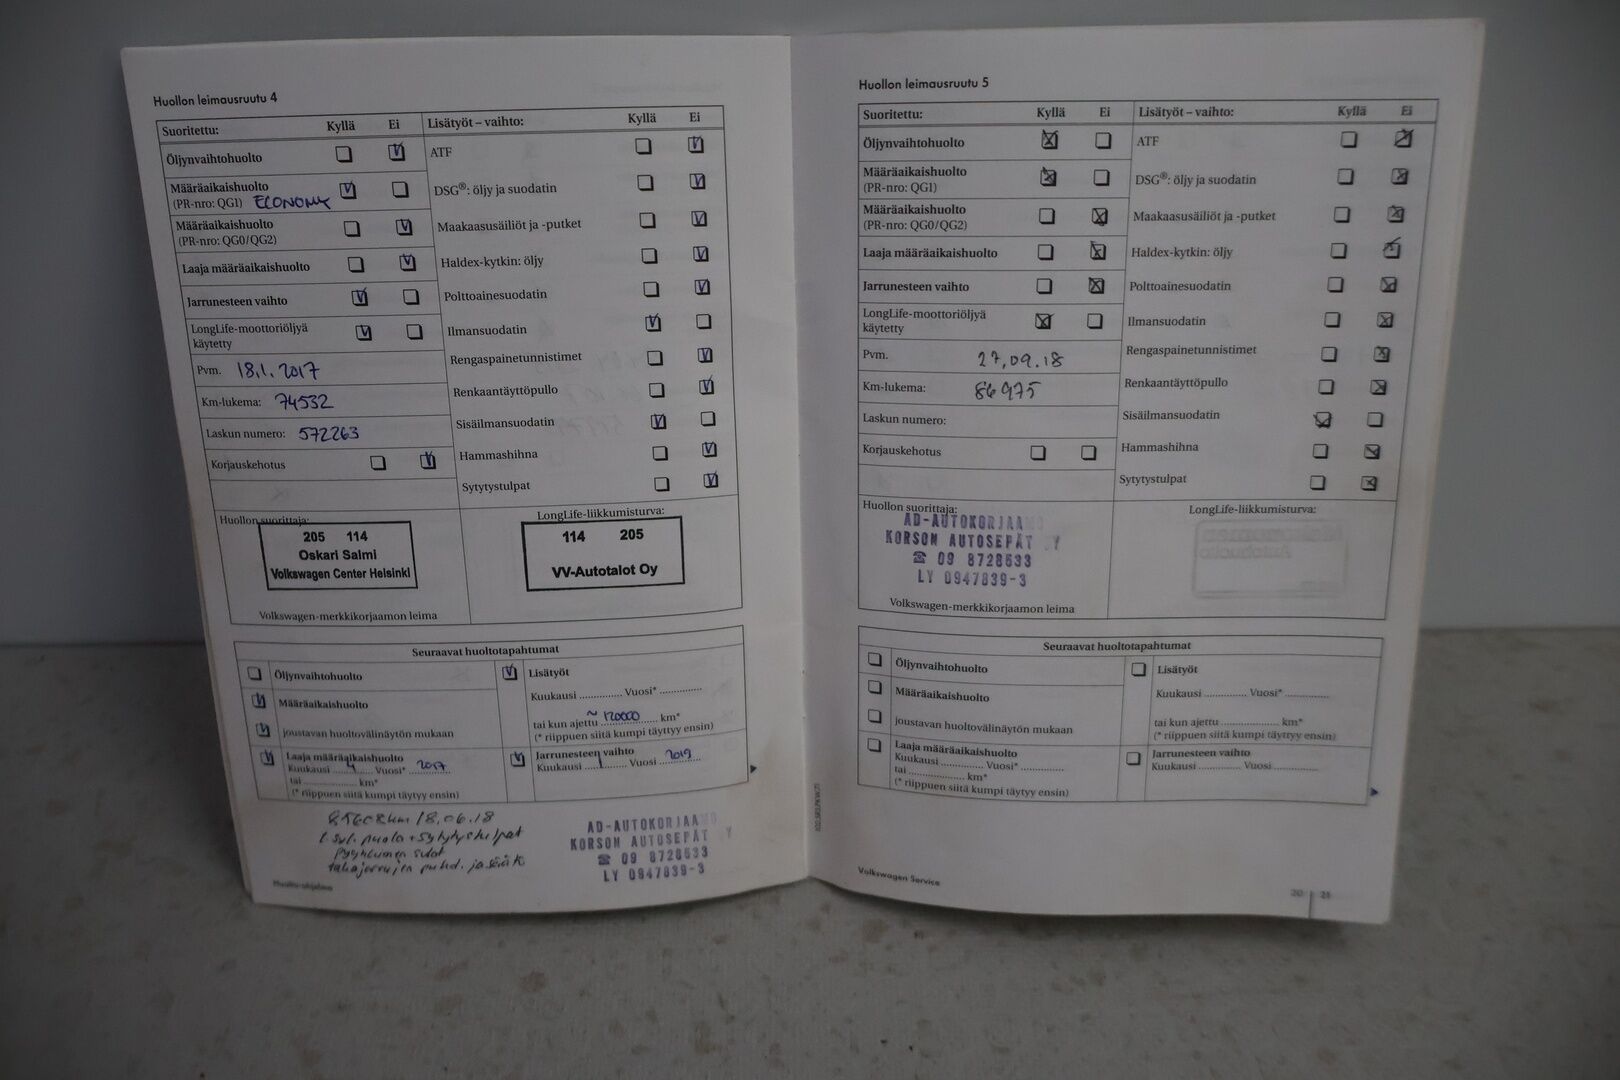 Huollon leimausruutu 4
Suoritettu: Kyllä Ei Lisätyöt – vaihto: Kyllä Ei
Öljynvaihtohuolto
Määräaikaishuolto
(PR-nro: QG1) ECONOMY
Määräaikaishuolto
(PR-nro: QG0/QG2)
Laaja määräaikaishuolto
Jarrunesteen vaihto
LongLife-moottoriöljyä
käytetty
Pvm. 18.1.2017
Km-lukema: 74532
Laskun numero: 572263
Korjauskehotus
ATF
DSG®: öljy ja suodatin
Maakaasusäiliöt ja -putket
Haldex-kytkin: öljy
Polttoainesuodatin
Ilmansuodatin
Rengaspainetunnistimet
Renkaantäyttöpullo
Sisäilmansuodatin
Hammashihna
Sytytystulpat
Huollon suorittaja:
205 114
Oskari Salmi
Volkswagen Center Helsinki
Volkswagen-merkkikorjaamon leima
LongLife-liikkumisturva:
114 205
VV-Autotalot Oy
Seuraavat huoltotapahtumat
Öljynvaihtohuolto
Määräaikaishuolto
joustavan huoltovälinäytön mukaan
Laaja määräaikaishuolto
Kuukausi 4 Vuosi* 2017
tai .................... km*
(* riippuen siitä kumpi täytyy ensin)
Lisätyöt
Kuukausi .............. Vuosi* ..............
tai kun ajettu ~ 120000 km*
(* riippuen siitä kumpi täyttyy ensin)
Jarrunesteen vaihto
Kuukausi 1 Vuosi 2019
18.06.18
+ sytytystulpat
AD-AUTOKORJAAMO
KORSON AUTOSEPÄT OY
☎ 09 8728633
LY 0947839-3
Huolto-ohjelma
Huollon leimausruutu 5
Suoritettu: Kyllä Ei Lisätyöt – vaihto: Kyllä Ei
Öljynvaihtohuolto
Määräaikaishuolto
(PR-nro: QG1)
Määräaikaishuolto
(PR-nro: QG0/QG2)
Laaja määräaikaishuolto
Jarrunesteen vaihto
LongLife-moottoriöljyä
käytetty
Pvm. 27.09.18
Km-lukema: 86975
Laskun numero:
Korjauskehotus
ATF
DSG®: öljy ja suodatin
Maakaasusäiliöt ja -putket
Haldex-kytkin: öljy
Polttoainesuodatin
Ilmansuodatin
Rengaspainetunnistimet
Renkaantäyttöpullo
Sisäilmansuodatin
Hammashihna
Sytytystulpat
Huollon suorittaja:
AD-AUTOKORJAAMO
KORSON AUTOSEPÄT OY
☎ 09 8728633
LY 0947839-3
Volkswagen-merkkikorjaamon leima
LongLife-liikkumisturva:
Seuraavat huoltotapahtumat
Öljynvaihtohuolto
Määräaikaishuolto
joustavan huoltovälinäytön mukaan
Laaja määräaikaishuolto
Kuukausi .............. Vuosi* ..............
tai .................... km*
(* riippuen siitä kumpi täytyy ensin)
Lisätyöt
Kuukausi .............. Vuosi* ..............
tai kun ajettu .................... km*
(* riippuen siitä kumpi täyttyy ensin)
Jarrunesteen vaihto
Kuukausi .............. Vuosi ..............
Volkswagen Service
20 | 21